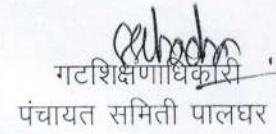 गटशिक्षणाधिकारी
पंचायत समिती पालघर